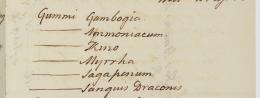 Gummi Gambogia
—— Ammoniacum
—— Kino
—— Myrrha
—— Sagapenum
—— Sanguis Draconis